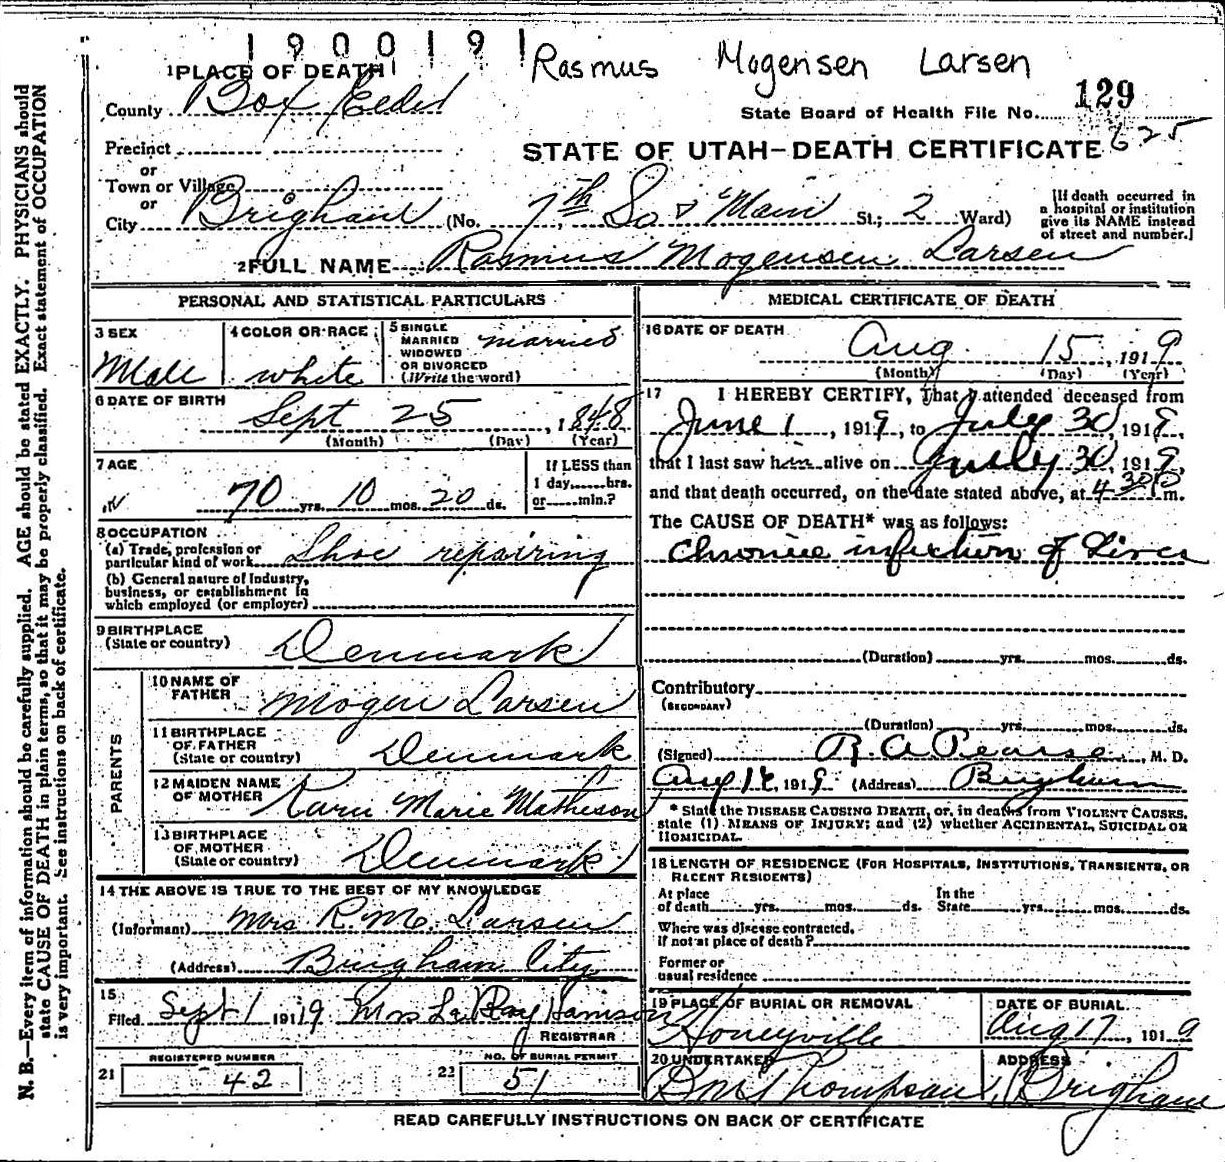 1900191
Rasmus Mogensen Larsen
1 PLACE OF DEATH
County Box Elder
State Board of Health File No. 129
625
Precinct
or
Town or Village
or
STATE OF UTAH—DEATH CERTIFICATE
City Brigham (No. 7th So & Main St.; 2 Ward)
[If death occurred in
a hospital or institution
give its NAME instead
of street and number.]
2 FULL NAME Rasmus Mogensen Larsen
PERSONAL AND STATISTICAL PARTICULARS
3 SEX
Male
4 COLOR OR RACE
white
5 SINGLE
MARRIED
WIDOWED
OR DIVORCED
(Write the word)
married
6 DATE OF BIRTH
Sept 25, 1848
(Month) (Day) (Year)
7 AGE
70 yrs. 10 mos. 20 ds.
If LESS than
1 day......hrs.
or......min.?
8 OCCUPATION
(a) Trade, profession or
particular kind of work Shoe repairing
(b) General nature of Industry,
business, or establishment in
which employed (or employer)
9 BIRTHPLACE
(State or country) Denmark
PARENTS
10 NAME OF
FATHER Mogen Larsen
11 BIRTHPLACE
OF FATHER
(State or country) Denmark
12 MAIDEN NAME
OF MOTHER Karn Marie Matheson
13 BIRTHPLACE
OF MOTHER
(State or country) Denmark
14 THE ABOVE IS TRUE TO THE BEST OF MY KNOWLEDGE
(Informant) Mrs R. M. Larsen
(Address) Brigham City
15
Filed Sept 1 1919 Mrs La Ray Hamison
REGISTRAR
REGISTERED NUMBER
21 42
NO. OF BURIAL PERMIT
22 51
MEDICAL CERTIFICATE OF DEATH
16 DATE OF DEATH
Aug 15, 1919
(Month) (Day) (Year)
17 I HEREBY CERTIFY, That I attended deceased from
June 1, 1919, to July 30, 1919,
that I last saw him alive on July 30, 1919,
and that death occurred, on the date stated above, at 4 30 P m.
The CAUSE OF DEATH* was as follows:
Chronic infection of Liver
(Duration) yrs. mos. ds.
Contributory
(SECONDARY)
(Duration) yrs. mos. ds.
(Signed) R. A. Pearse, M. D.
Aug, 1919 (Address) Brigham
* State the DISEASE CAUSING DEATH, or, in deaths from VIOLENT CAUSES,
state (1) MEANS OF INJURY; and (2) whether ACCIDENTAL, SUICIDAL OR
HOMICIDAL.
18 LENGTH OF RESIDENCE (FOR HOSPITALS, INSTITUTIONS, TRANSIENTS, OR
RECENT RESIDENTS)
At place
of death yrs. mos. ds.
In the
State yrs. mos. ds.
Where was disease contracted.
If not at place of death?
Former or
usual residence
19 PLACE OF BURIAL OR REMOVAL
Honeyville
DATE OF BURIAL
Aug 17, 1919
20 UNDERTAKER
Thompson
ADDRESS
Brigham
READ CAREFULLY INSTRUCTIONS ON BACK OF CERTIFICATE
N. B.—Every item of information should be carefully supplied. AGE should be stated EXACTLY. PHYSICIANS should
state CAUSE OF DEATH in plain terms, so that it may be properly classified. Exact statement of OCCUPATION
is very important. See instructions on back of certificate.